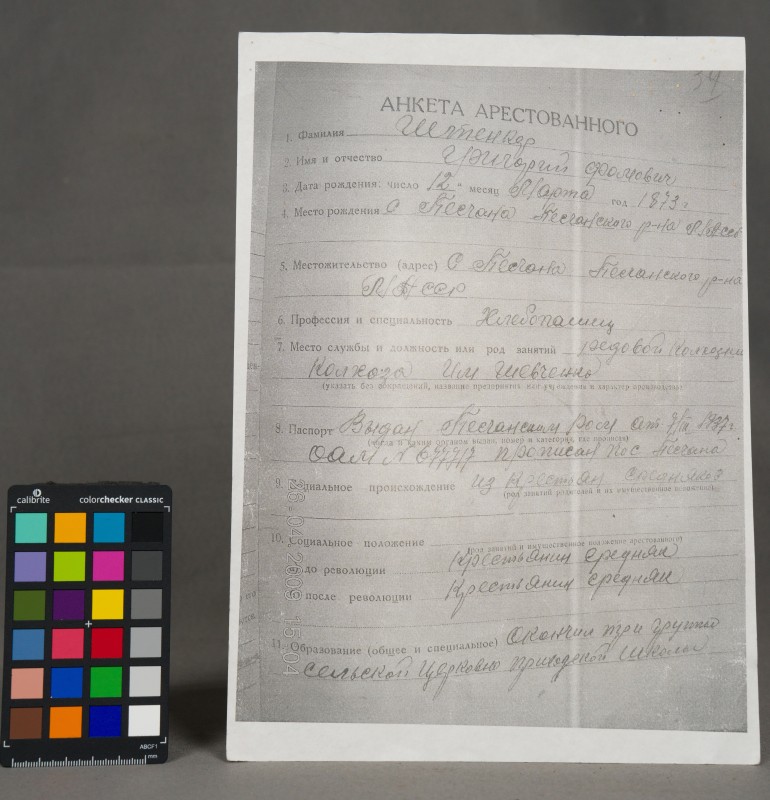 34
АНКЕТА АРЕСТОВАННОГО
1. Фамилия Штенкар
2. Имя и отчество Григорий Фомович
3. Дата рождения: число 12 " месяц Марта год 1873 г
4. Место рождения С Песчана Песчанского р-на
5. Местожительство (адрес) С Песчана Песчанского р-на
МАССР
6. Профессия и специальность Хлебопашец
7. Место службы и должность или род занятий редовой Колхозник
Колхоза Им Шевченко
(указать без сокращений, название предприятия или учреждения и характер производства)
8. Паспорт Выдан Песчанским от
(число и каким органом выдан, номер и категория, где прописан)
ОАМ № прописан Песчана
9. Социальное происхождение из Крестьян середняков
(род занятий родителей и их имущественное положение)
10. Социальное положение
(род занятий и имущественное положение арестованного)
до революции Крестьянин Середняк
после революции Крестьянин Середняк
11. Образование (общее и специальное) Окончил три группы
сельской Церковно приходской школы
28.04.2009 15:04
calibrite colorchecker CLASSIC
ABCF1
mm